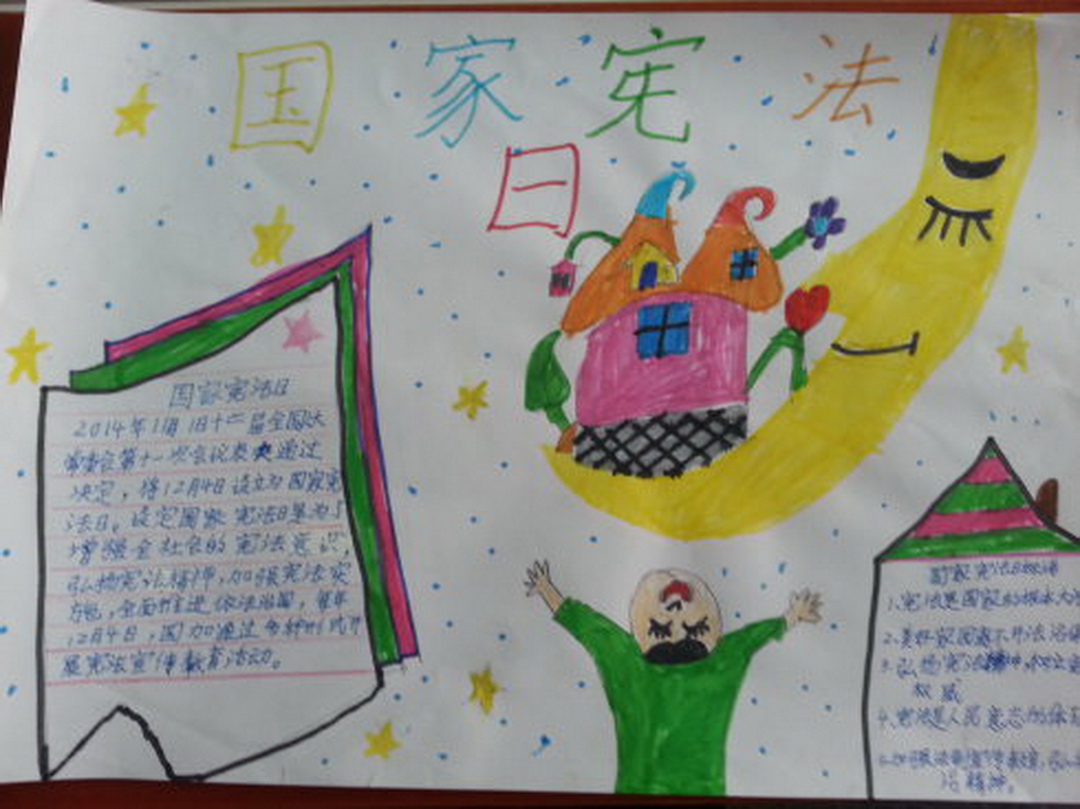 国家宪法
日
国家宪法日
2014年11月1日十二届全国人大
常委会第十一次会议表决通过
决定，将12月4日设立为国家宪
法日。设定国家宪法日是为了
增强全社会的宪法意识，
弘扬宪法精神，加强宪法实
施，全面推进依法治国，每年
12月4日，国加通过多种形式开
展宪法宣传教育活动。
国家宪法日
1、宪法是国家的根本大法
2、美好家园离不开法治
3、弘扬宪法精神，树立
权威
4、宪法是人民意志的体
治精神。